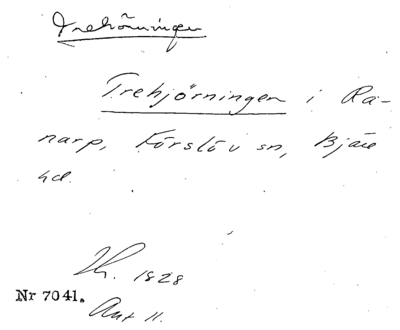 Trehörningen
Trehjörningen i Ra-
narp, Förslöv sn, Bjäre
hd.
Th. 1828
Nr 7041.
Ant 11.